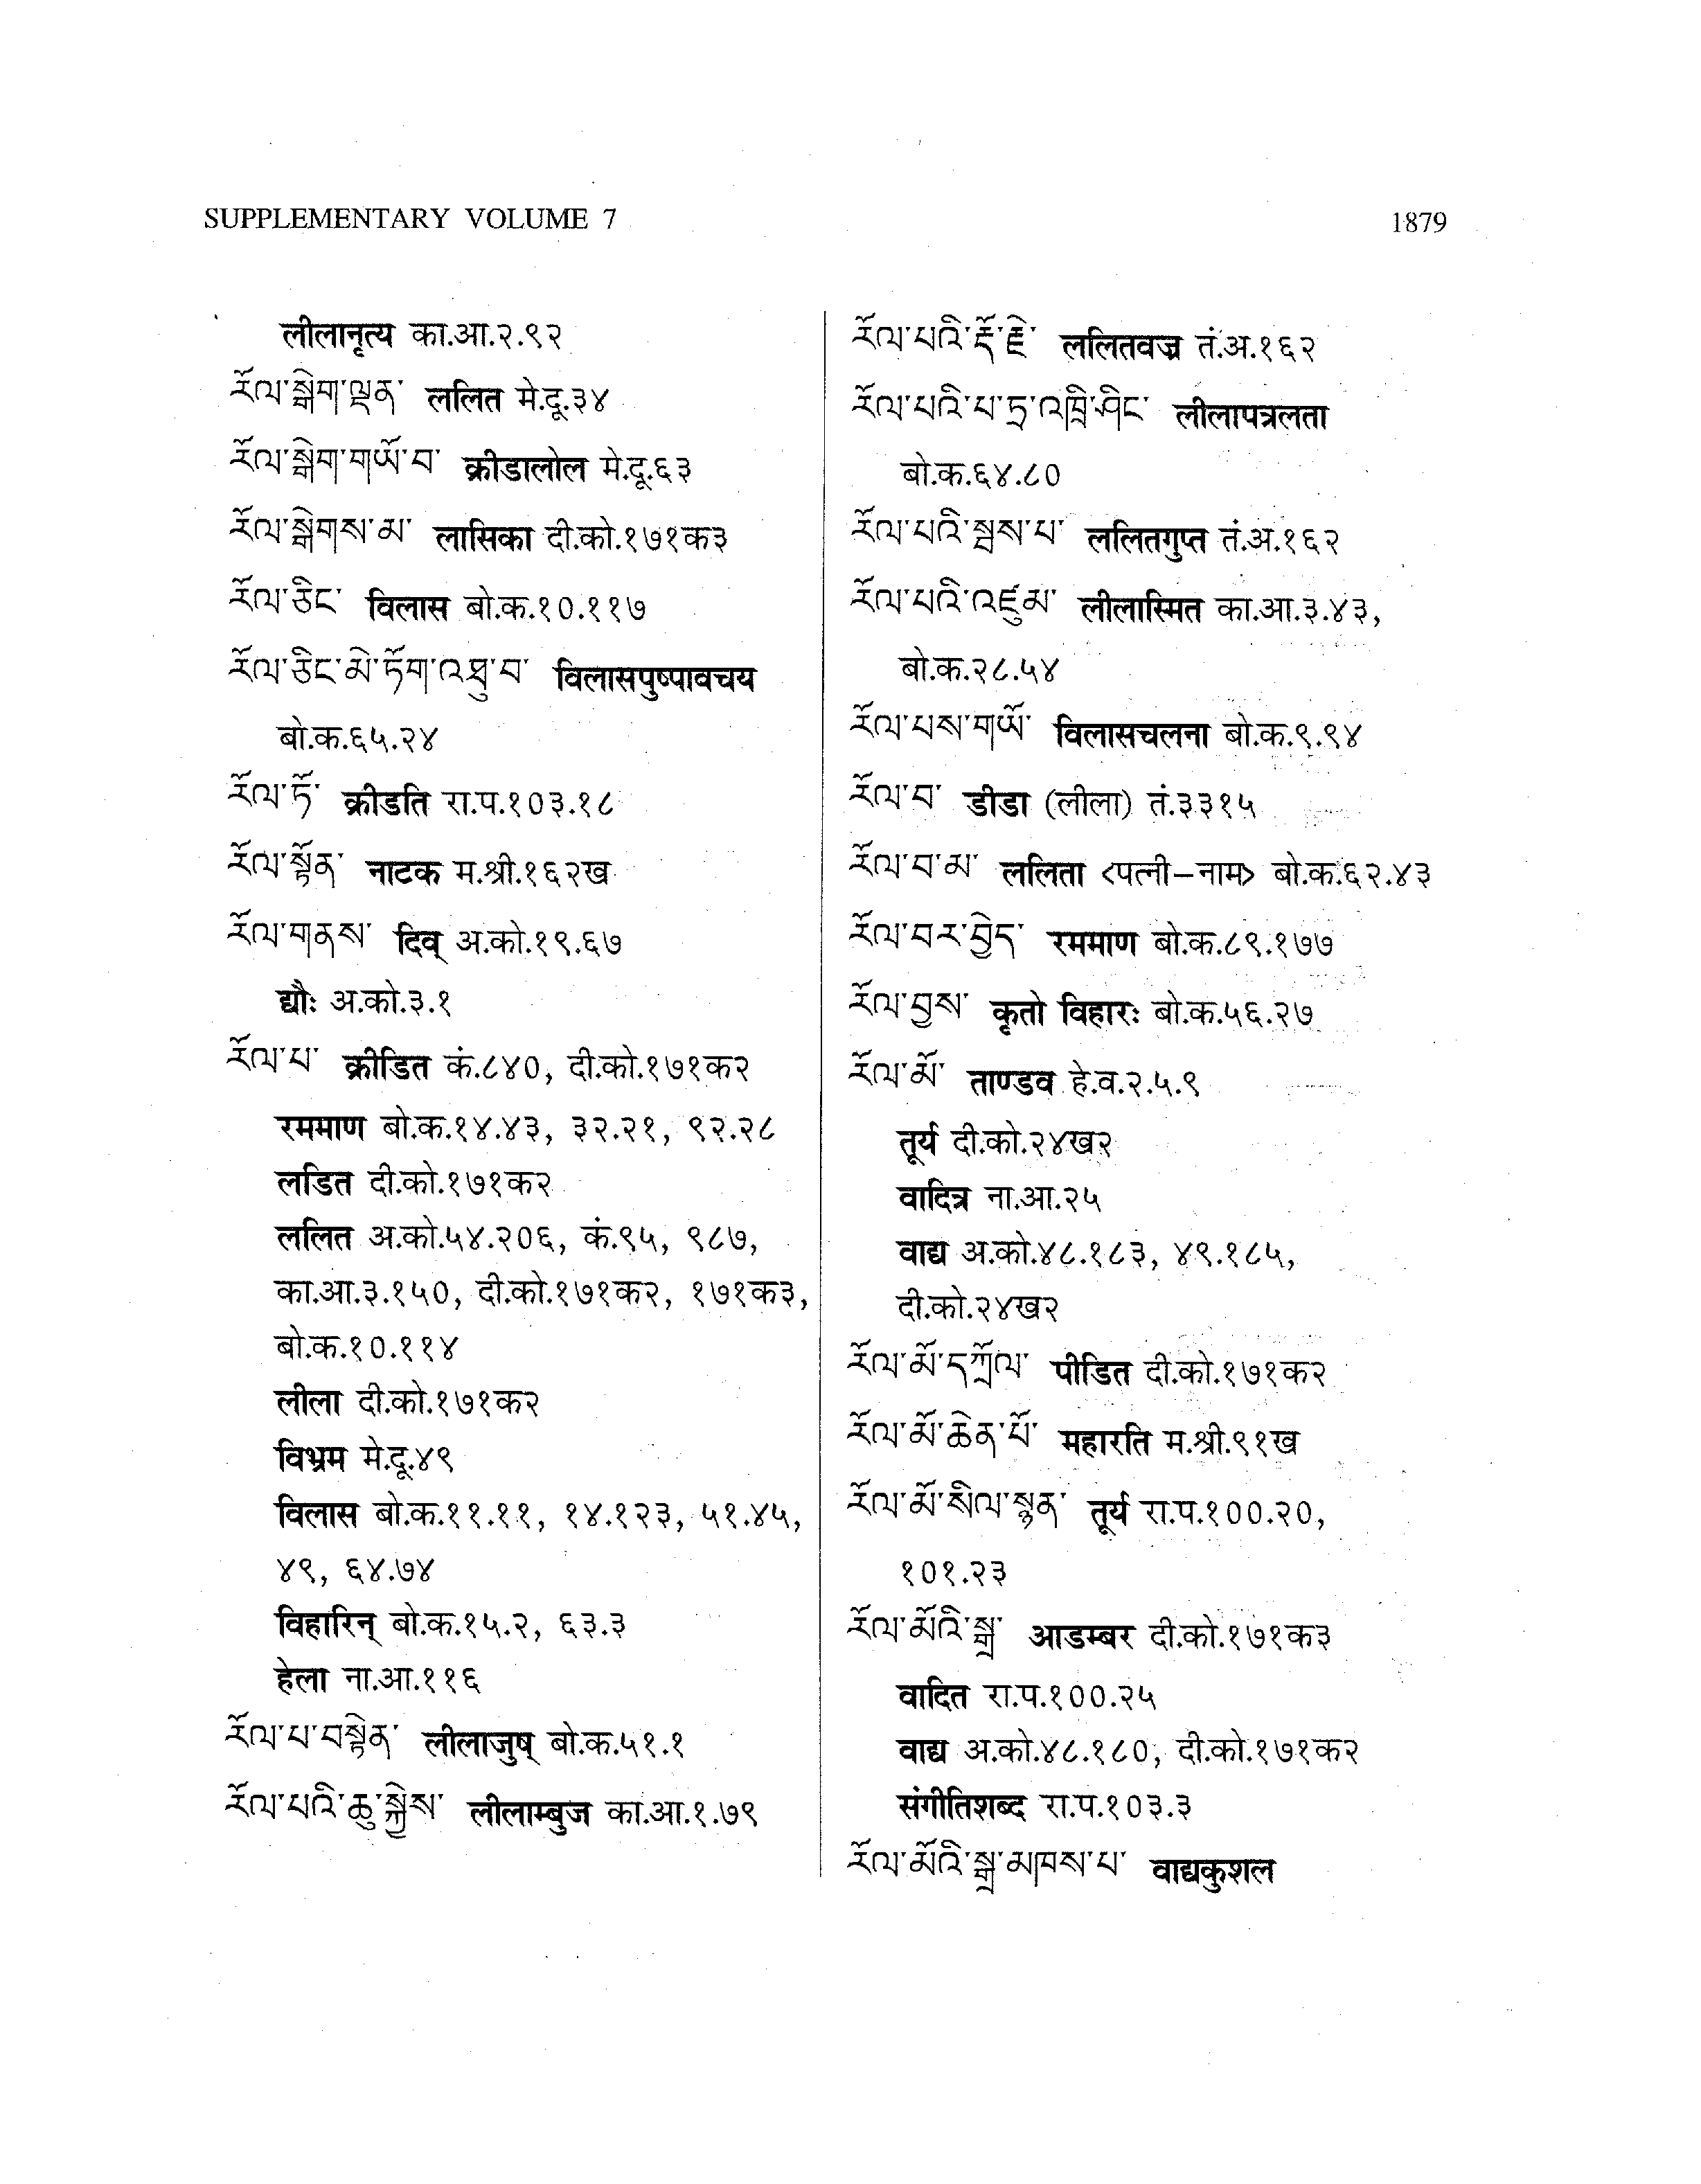 SUPPLEMENTARY VOLUME 7
1879
लीलानृत्य का.आ.२.९२
རོལ་སྒེག་ལྡན་ ललित मे.दू.३४
རོལ་སྒེག་གཡོ་བ་ क्रीडालोल मे.दू.६३
རོལ་སྒེགས་མ་ लासिका दी.को.१७१क३
རོལ་ཅིང་ विलास बो.क.१०.११७
རོལ་ཅིང་མེ་ཏོག་འཐུ་བ་ विलासपुष्पावचय
बो.क.६५.२४
རོལ་ཏོ་ क्रीडति रा.प.१०३.१८
རོལ་སྟོན་ नाटक म.श्री.१६२ख
རོལ་གནས་ दिव् अ.को.१९.६७
द्यौः अ.को.३.१
རོལ་པ་ क्रीडित कं.८४०, दी.को.१७१क२
रममाण बो.क.१४.४३, ३२.२१, ९२.२८
लडित दी.को.१७१क२
ललित अ.को.५४.२०६, कं.९५, ९८७,
का.आ.३.१५०, दी.को.१७१क२, १७१क३,
बो.क.१०.११४
लीला दी.को.१७१क२
विभ्रम मे.दू.४९
विलास बो.क.११.११, १४.१२३, ५१.४५,
४९, ६४.७४
विहारिन् बो.क.१५.२, ६३.३
हेला ना.आ.११६
རོལ་པ་བསྟེན་ लीलाजुष् बो.क.५१.१
རོལ་པའི་ཆུ་སྐྱེས་ लीलाम्बुज का.आ.१.७९
རོལ་པའི་རྡོ་རྗེ་ ललितवज्र तं.अ.१६२
རོལ་པའི་པ་ཏྲ་འཁྲི་ཤིང་ लीलापत्रलता
बो.क.६४.८०
རོལ་པའི་སྦས་པ་ ललितगुप्त तं.अ.१६२
རོལ་པའི་འཛུམ་ लीलास्मित का.आ.३.४३,
बो.क.२८.५४
རོལ་པས་གཡོ་ विलासचलना बो.क.९.९४
རོལ་བ་ डीडा (लीला) तं.३३१५
རོལ་བ་མ་ ललिता <पत्नी–नाम> बो.क.६२.४३
རོལ་བར་བྱེད་ रममाण बो.क.८९.१७७
རོལ་བྱས་ कृतो विहारः बो.क.५६.२७
རོལ་མོ་ ताण्डव हे.व.२.५.९
तूर्य दी.को.२४ख२
वादित्र ना.आ.२५
वाद्य अ.को.४८.१८३, ४९.१८५,
दी.को.२४ख२
རོལ་མོ་དཀྲོལ་ पीडित दी.को.१७१क२
རོལ་མོ་ཆེན་པོ་ महारति म.श्री.९१ख
རོལ་མོ་སིལ་སྙན་ तूर्य रा.प.१००.२०,
१०१.२३
རོལ་མོའི་སྒྲ་ आडम्बर दी.को.१७१क३
वादित रा.प.१००.२५
वाद्य अ.को.४८.१८०, दी.को.१७१क२
संगीतिशब्द रा.प.१०३.३
རོལ་མོའི་སྒྲ་མཁས་པ་ वाद्यकुशल